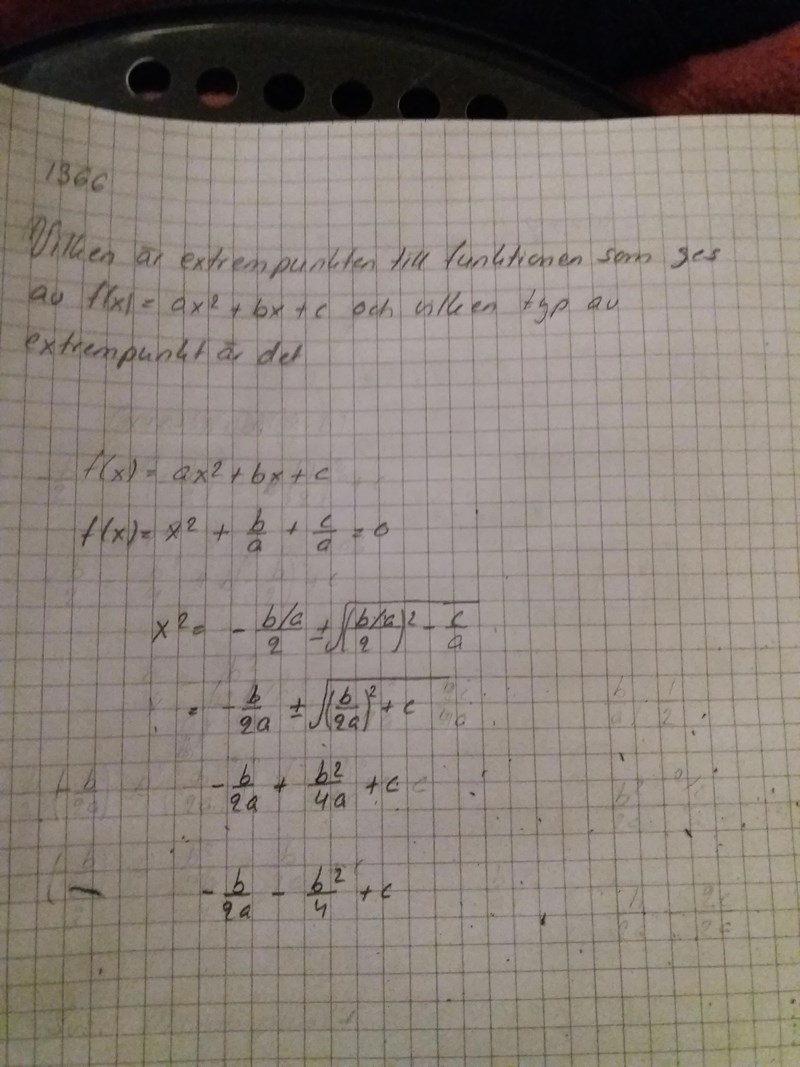 1366
Vilken är extrempunkten till funktionen som ges
av f(x) = ax² + bx + c och vilken typ av
extrempunkt är det
f(x) = ax² + bx + c
f(x) = x² + b/a + c/a = 0
x² = - (b/a)/2 ± √(((b/a)/2)² - c/a)
= - b/2a ± √((b/2a)² + c)
- b/2a + b²/4a + c
- b/2a - b²/4 + c